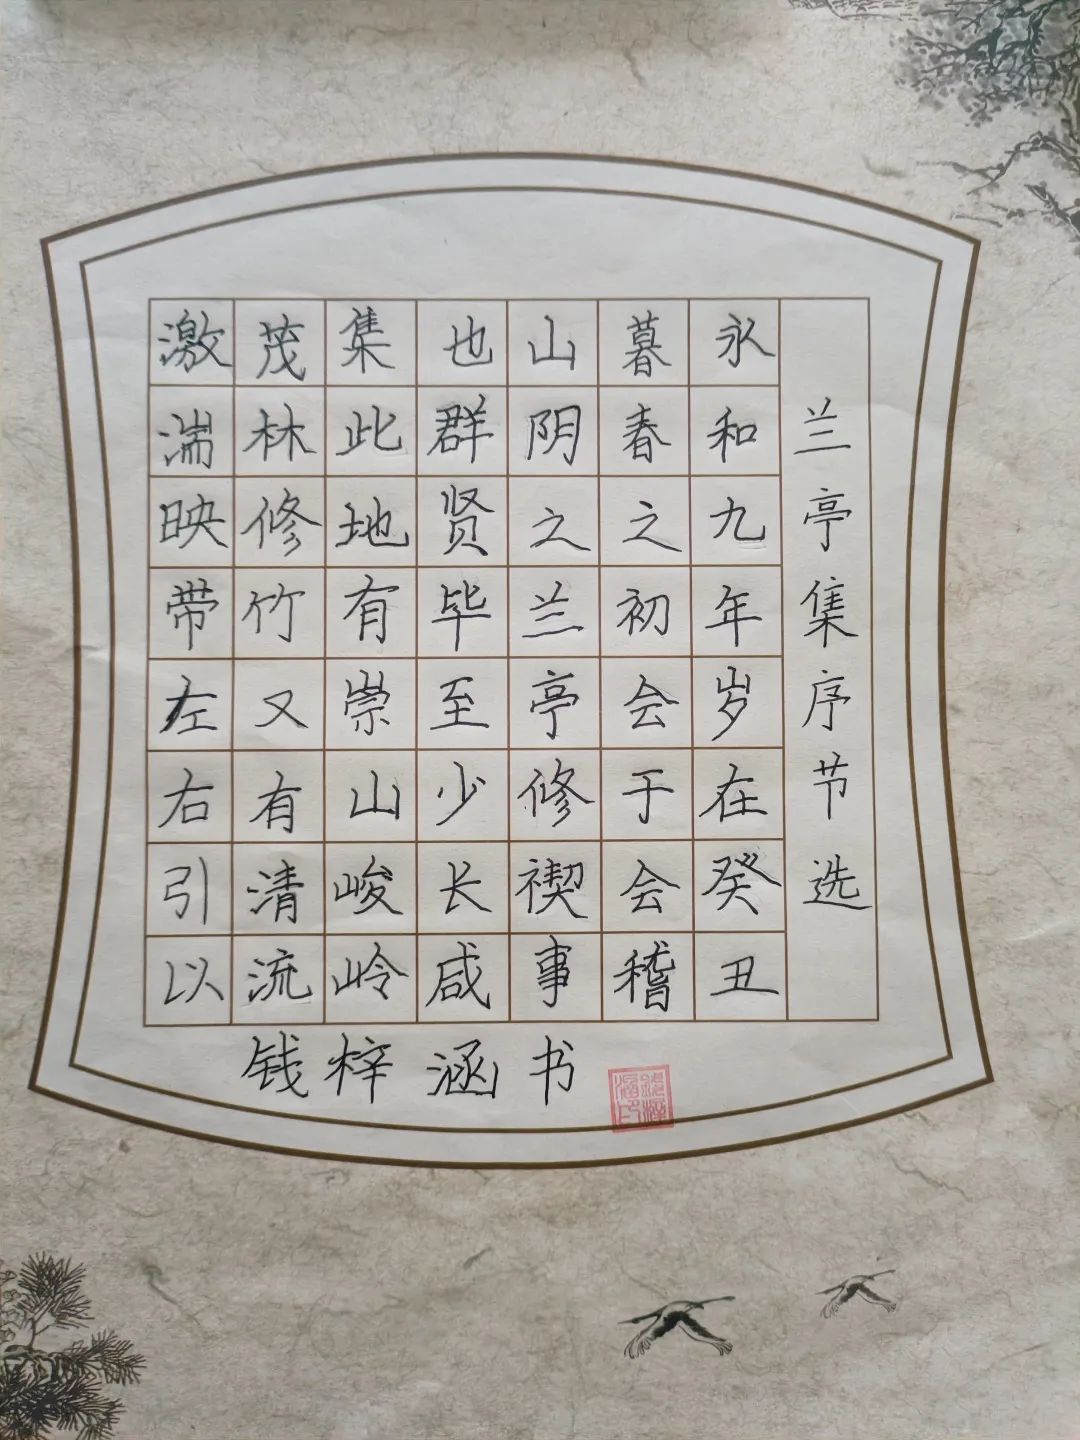 兰亭集序节选
永和九年岁在癸丑
暮春之初会于会稽
山阴之兰亭修禊事
也群贤毕至少长咸
集此地有崇山峻岭
茂林修竹又有清流
激湍映带左右引以
钱梓涵书